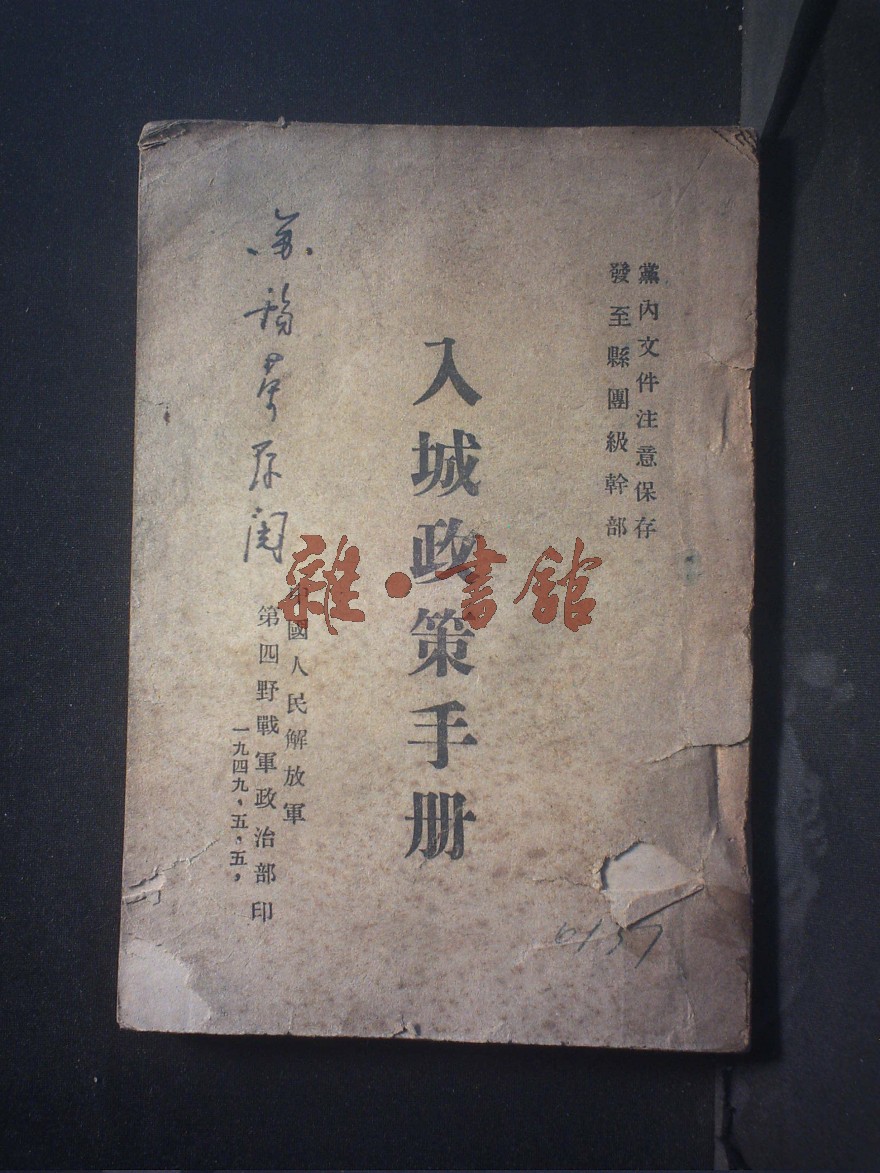 黨內文件注意保存
發至縣團級幹部
入城政策手册
中國人民解放軍
第四野戰軍政治部印
一九四九，五，五，
雜·書館
6137